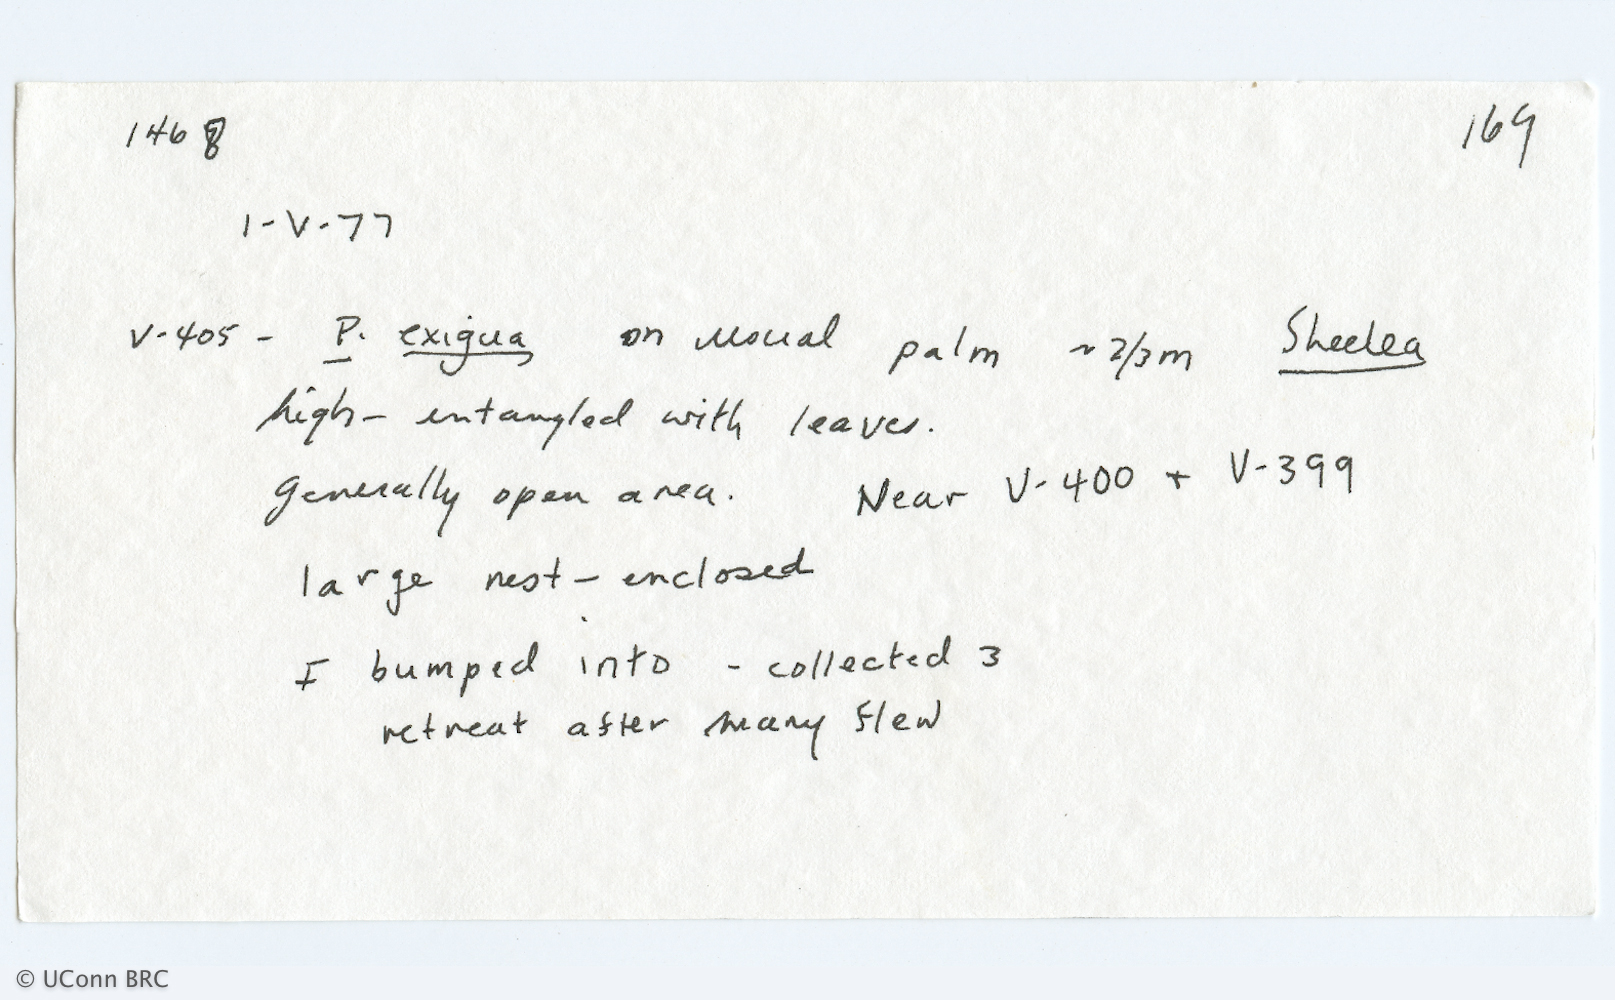 1468 169
1-V-77
V-405 - P. exigua on usual palm ~2/3m Sheelea
high - entangled with leaves.
generally open area. Near V-400 + V-399
large nest - enclosed
I bumped into - collected 3
retreat after many flew
© UConn BRC